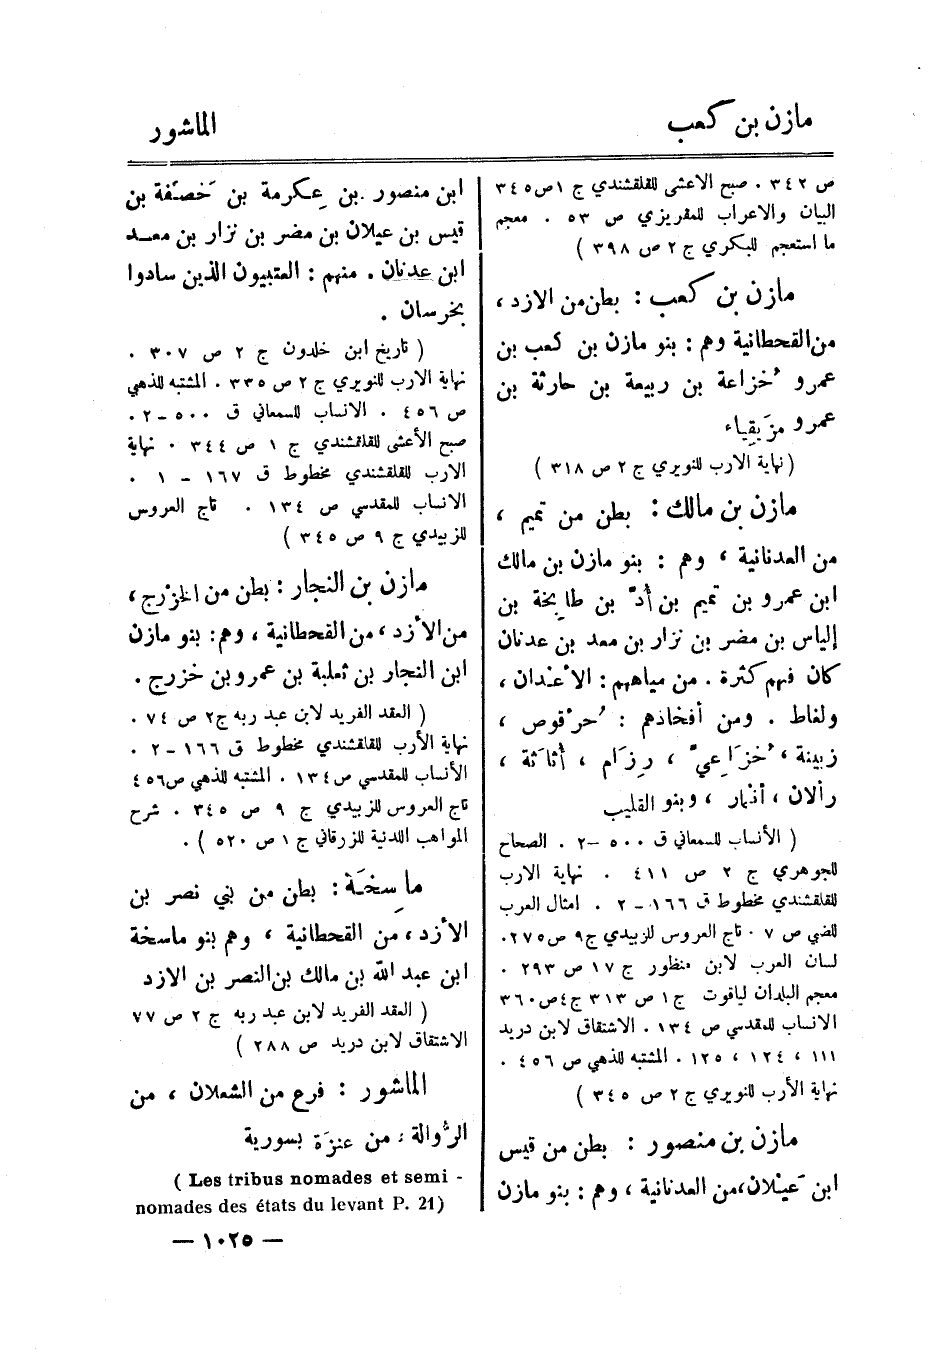 مازن بن كعب
الماشور
ص ٣٤٢ . صبح الاعشى للقلقشندي ج ١ ص ٣٤٥
البيان والاعراب للمقريزي ص ٥٣ . معجم
ما استعجم للبكري ج ٢ ص ٣٩٨ )
مازن بن كعب : بطن من الازد ،
من القحطانية وهم : بنو مازن بن كعب بن
عمرو خُزاعة بن ربيعة بن حارثة بن
عمرو مزَيقِياء
(نهاية الارب للنويري ج ٢ ص ٣١٨ )
مازن بن مالك : بطن من تميم ،
من العدنانية ، وهم : بنو مازن بن مالك
ابن عمرو بن تميم بن أدّ بن طابِخة بن
إلياس بن مضر بن نزار بن معد بن عدنان
كان فيهم كثرة . من مياههم : الأعْندان ،
ولغاط . ومن أفخاذهم : حُرْقوص ،
زبينة ، خُزَاعيّ ، رِزَام ، أثاثَة ،
رألان ، أنمار ، وبنو القليب
( الأنساب للسمعاني ق ٥٠٠ -٢ . الصحاح
للجوهري ج ٢ ص ٤١١ . نهاية الارب
للقلقشندي مخطوط ق ١٦٦-٢ . امثال العرب
للضبي ص ٧ . تاج العروس للزبيدي ج٩ ص٢٧٥.
لسان العرب لابن منظور ج ١٧ ص ٢٩٣ .
معجم البلدان لياقوت ج١ ص ٣١٣ ج٤ص ٣٦٠
الانساب للمقدسي ص ١٣٤ . الاشتقاق لابن دريد
١١١ ، ١٢٤ ، ١٢٥ . المشتبه للذهبي ص ٤٥٦ .
نهاية الأرب للنويري ج ٢ ص ٣٤٥ )
مازن بن منصور : بطن من قيس
ابن عَيْلان، من العدنانية ، وهم : بنو مازن
ابن منصور بن عِكرمة بن خَصَفة بن
قيس بن عيلان بن مضر بن نزار بن معد
ابن عدنان . منهم : العتبيون الذين سادوا
بخرسان .
( تاريخ ابن خلدون ج ٢ ص ٣٠٧ .
نهاية الارب للنويري ج ٢ ص ٣٣٥ . المشتبه للذهبي
ص ٤٥٦ . الانساب للسمعاني ق ٥٠٠-٢ .
صبح الأعشى للقلقشندي ج ١ ص ٣٤٤ . نهاية
الارب للقلقشندي مخطوط ق ١٦٧ - ١ .
الانساب للمقدسي ص ١٣٤ . تاج العروس
للزبيدي ج ٩ ص ٣٤٥ )
مازن بن النجار : بطن من الخزْرج ،
من الأزد ، من القحطانية ، وهم: بنو مازن
ابن النجار بن ثعلبة بن عمرو بن خزرج .
( العقد الفريد لابن عبد ربه ج٢ ص ٧٤ .
نهاية الأرب للقلقشندي مخطوط ق ١٦٦-٢ .
الأنساب للمقدسي ص ١٣٤ . المشتبه للذهبي ص٤٥٦
تاج العروس للزبيدي ج ٩ ص ٣٤٥ . شرح
المواهب اللدنية للزرقاني ج ١ ص ٥٢٠ ) .
ماسِخَة : بطن من بني نصر بن
الأزد ، من القحطانية ، وهم بنو ماسخة
ابن عبد الله بن مالك بن النصر بن الازد
( العقد الفريد لابن عبد ربه ج ٢ ص ٧٧
الاشتقاق لابن دريد ص ٢٨٨ )
الماشور : فرع من الشعلان ، من
الرُّوالة ، من عنزَة بسورية
( Les tribus nomades et semi -
nomades des états du levant P. 21)
— ١٠٢٥ —